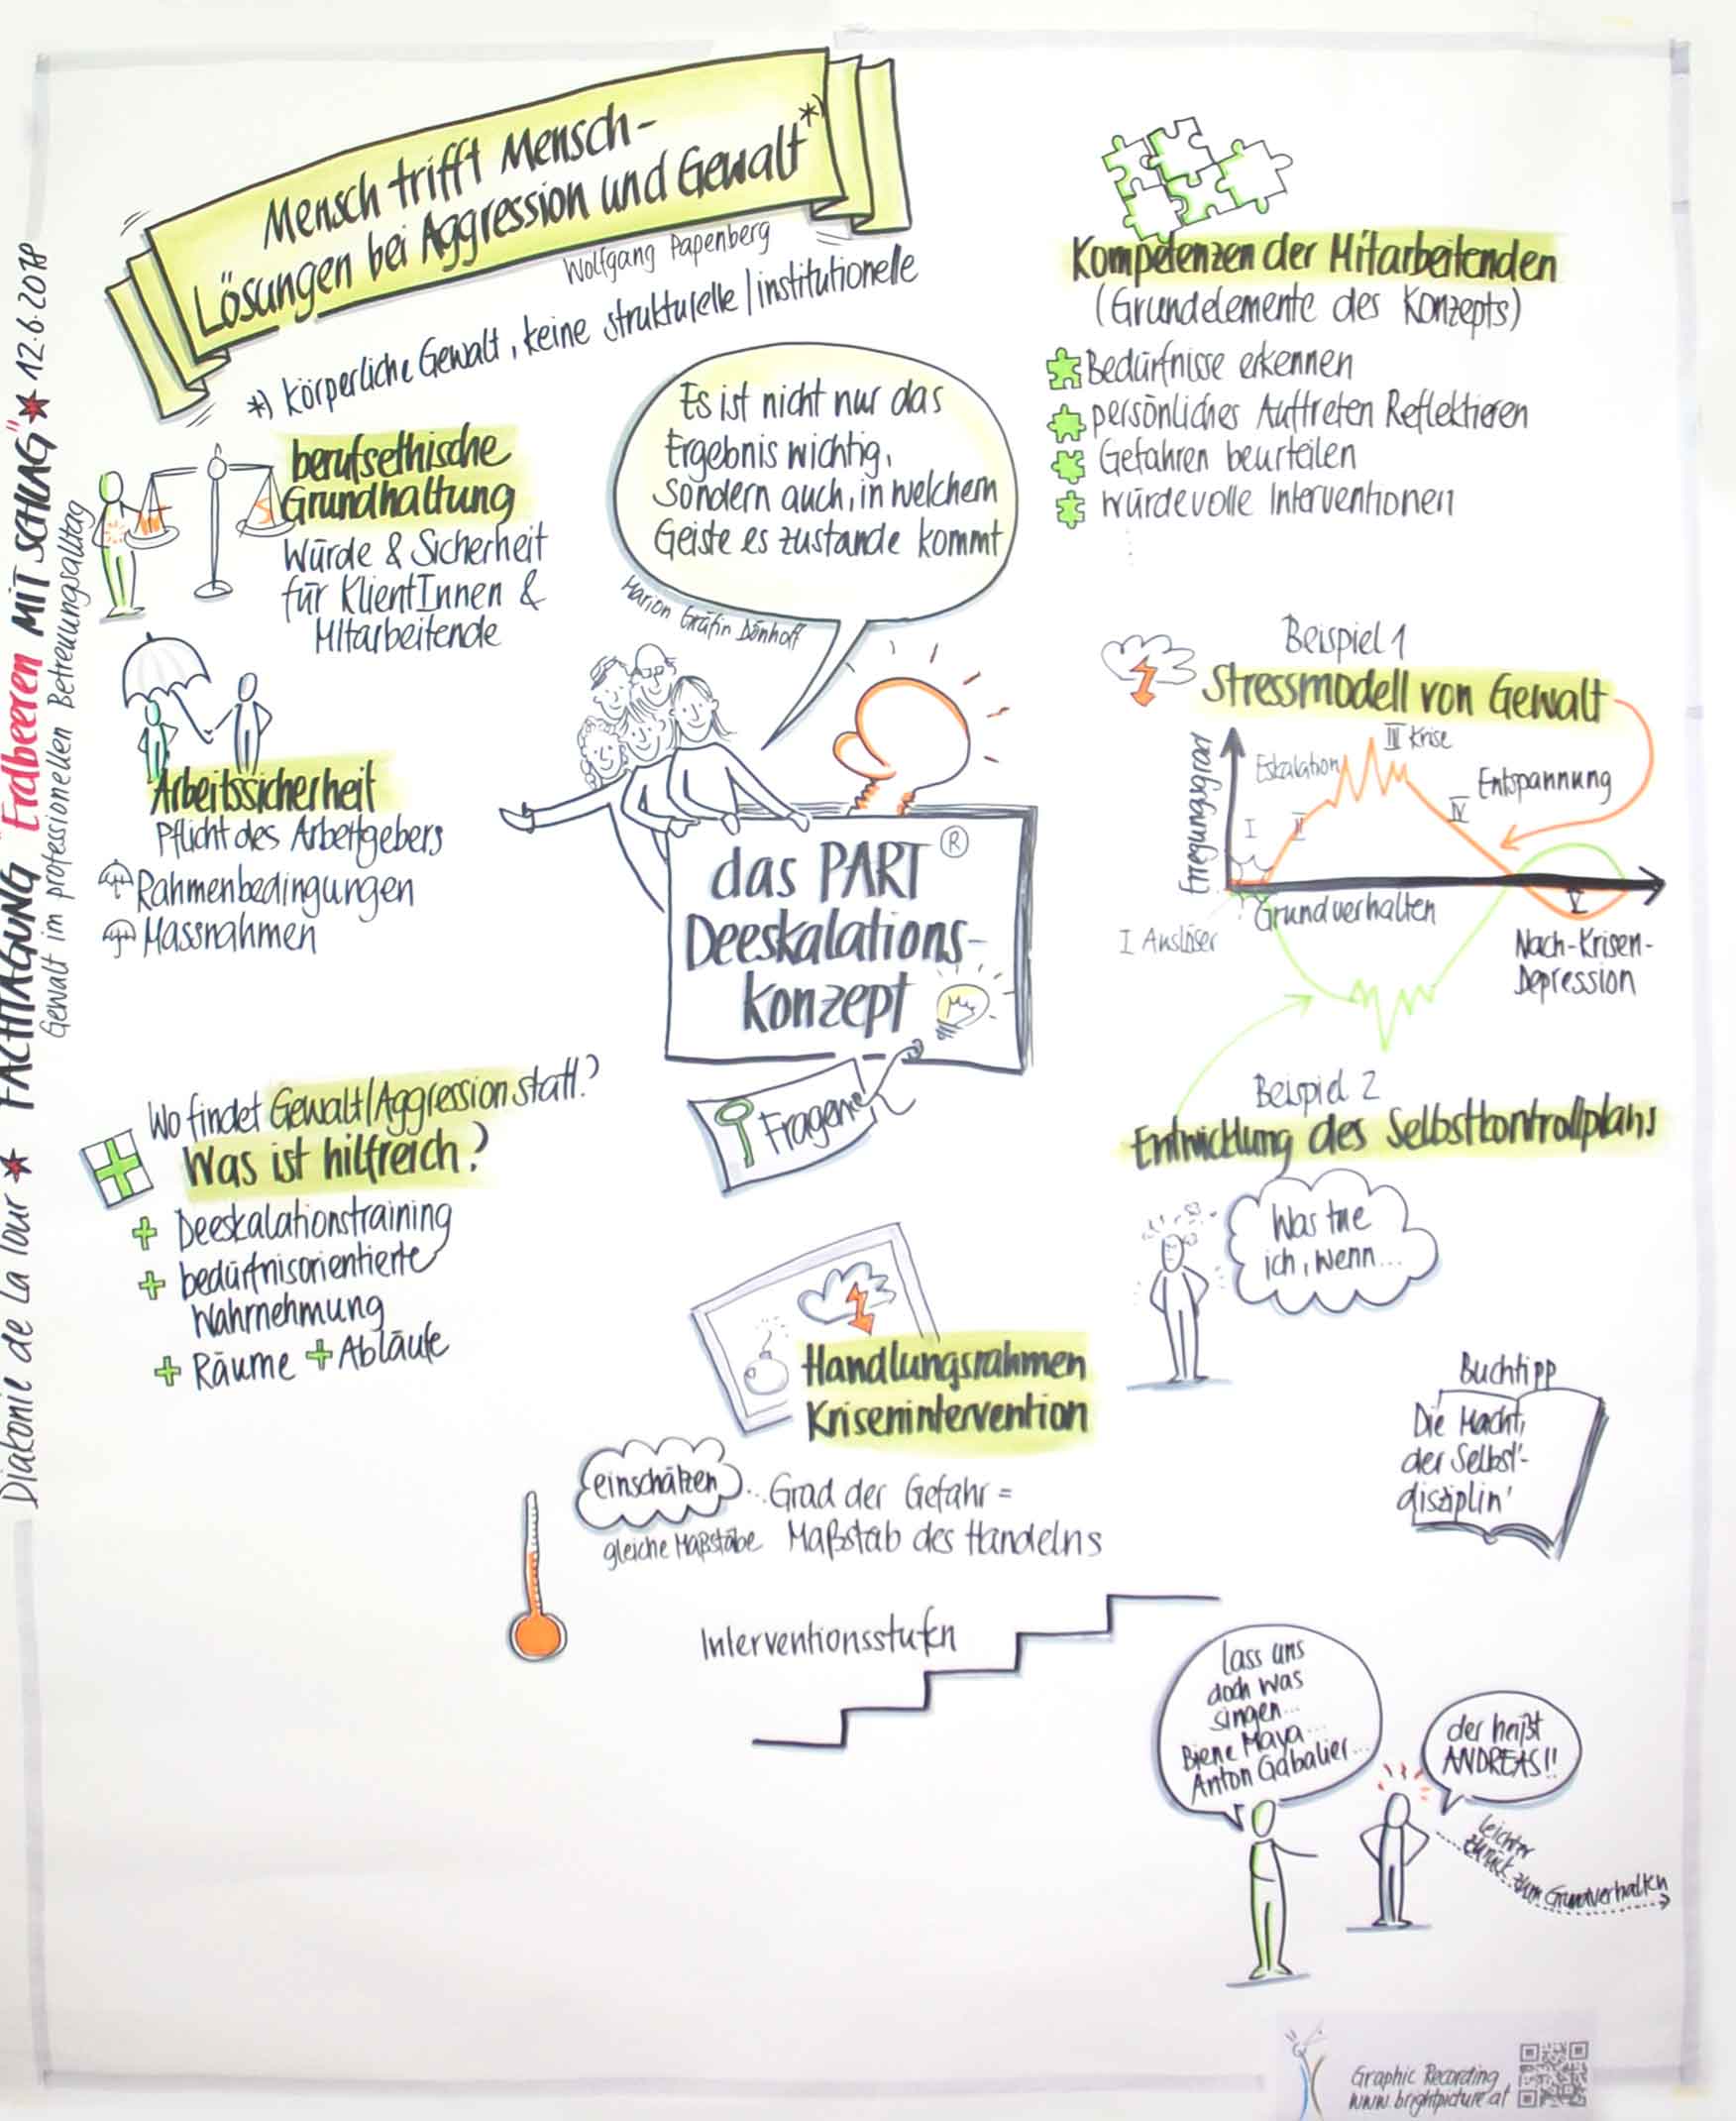 Diakonie de La Tour ★ FACHTAGUNG "Erdbeeren MIT SCHLAG" ★ 12.6.2018
Gewalt im professionellen Betreuungsalltag
Mensch trifft Mensch -
Lösungen bei Aggression und Gewalt *)
Wolfgang Papenberg
*) körperliche Gewalt, keine strukturelle / institutionelle
berufsethische
Grundhaltung
Würde & Sicherheit
für KlientInnen &
Mitarbeitende
Arbeitssicherheit
Pflicht des Arbeitgebers
Rahmenbedingungen
Massnahmen
Wo findet Gewalt/Aggression statt?
Was ist hilfreich?
+ Deeskalationstraining
+ bedürfnisorientierte
Wahrnehmung
+ Räume + Abläufe
Es ist nicht nur das
Ergebnis wichtig,
sondern auch, in welchem
Geiste es zustande kommt
Marion Gräfin Dönhoff
das PART ®
Deeskalations-
konzept
Fragen
Handlungsrahmen
Krisenintervention
einschätzen ... Grad der Gefahr =
gleiche Maßstäbe Maßstab des Handelns
Interventionsstufen
Kompetenzen der Mitarbeitenden
(Grundelemente des Konzepts)
Bedürfnisse erkennen
persönliches Auftreten Reflektieren
Gefahren beurteilen
würdevolle Interventionen
Beispiel 1
Stressmodell von Gewalt
Erregungsgrad
I
II
Eskalation
III Krise
IV
Entspannung
Grundverhalten
I Auslöser
V
Nach-Krisen-
Depression
Beispiel 2
Entwicklung des Selbstkontrollplans
Was tue
ich, wenn...
Buchtipp
Die Macht
der Selbst-
disziplin'
lass uns
doch was
singen...
Biene Maya...
Anton Gabalier...
der heißt
ANDREAS!!
leichter
zurück zum Grundverhalten
Graphic Recording
www.brightpicture.at